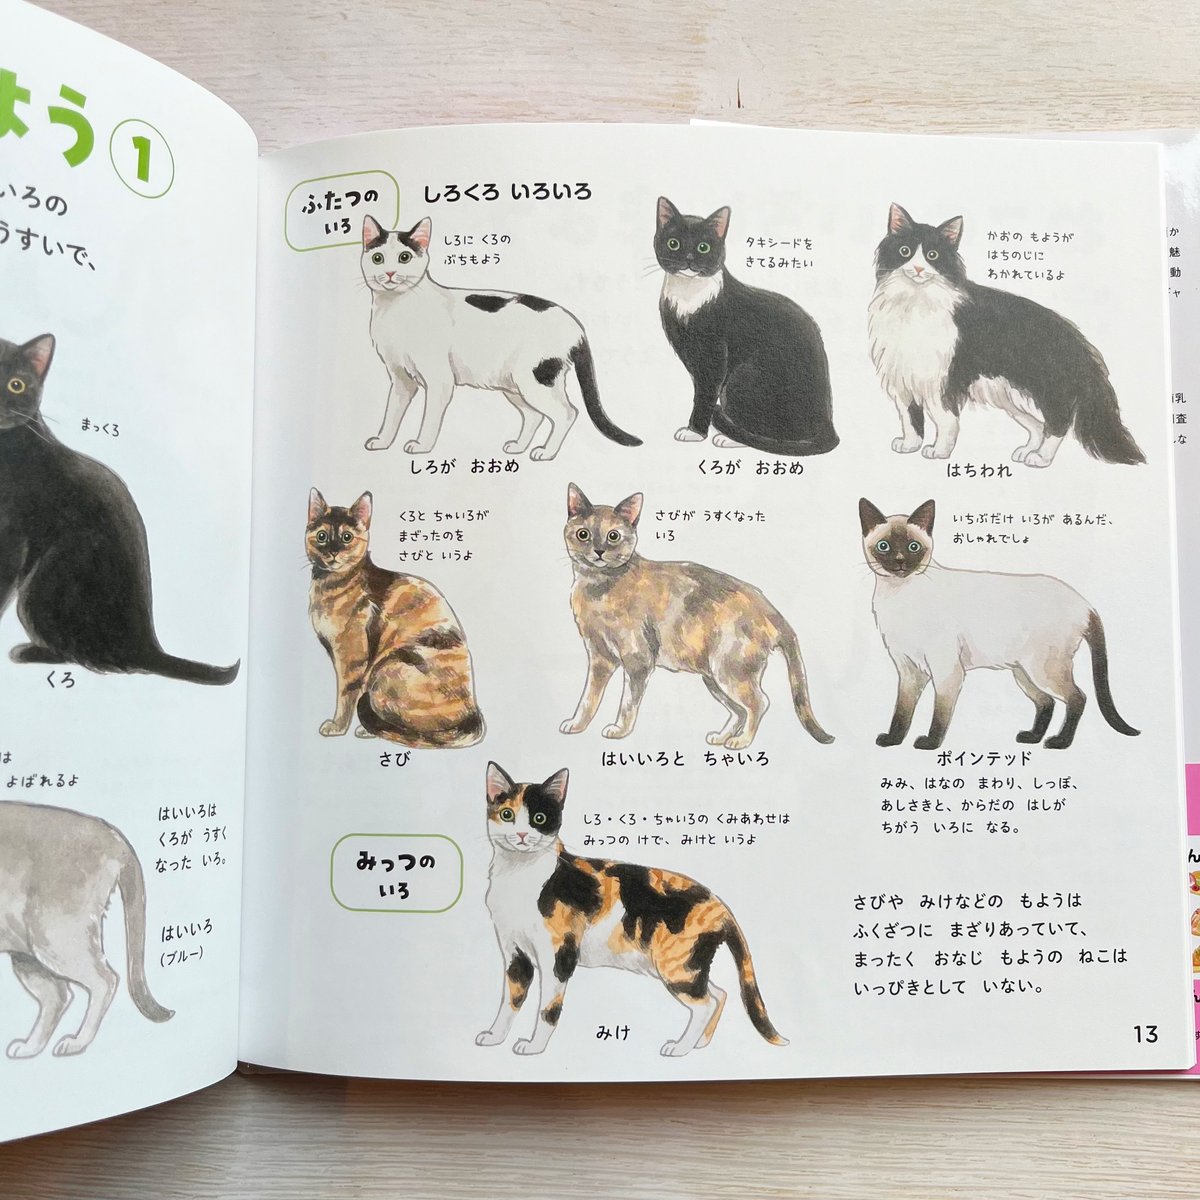 よう 1
いろの
うすいで、
まっくろ
くろ
は
よばれるよ
はいいろは
くろが うすく
なった いろ。
はいいろ
(ブルー)
ふたつの
いろ
しろくろ いろいろ
しろに くろの
ぶちもよう
しろが おおめ
タキシードを
きてるみたい
くろが おおめ
かおの もようが
はちのじに
わかれているよ
はちわれ
くろと ちゃいろが
まざったのを
さびと いうよ
さび
さびが うすくなった
いろ
はいいろと ちゃいろ
いちぶだけ いろが あるんだ、
おしゃれでしょ
ポインテッド
みみ、はなの まわり、しっぽ、
あしさきと、からだの はしが
ちがう いろに なる。
みっつの
いろ
しろ・くろ・ちゃいろの くみあわせは
みっつの けで、みけと いうよ
みけ
さびや みけなどの もようは
ふくざつに まざりあっていて、
まったく おなじ もようの ねこは
いっぴきとして いない。
13
か
魅
動
ギャ
乳
査
な
ん